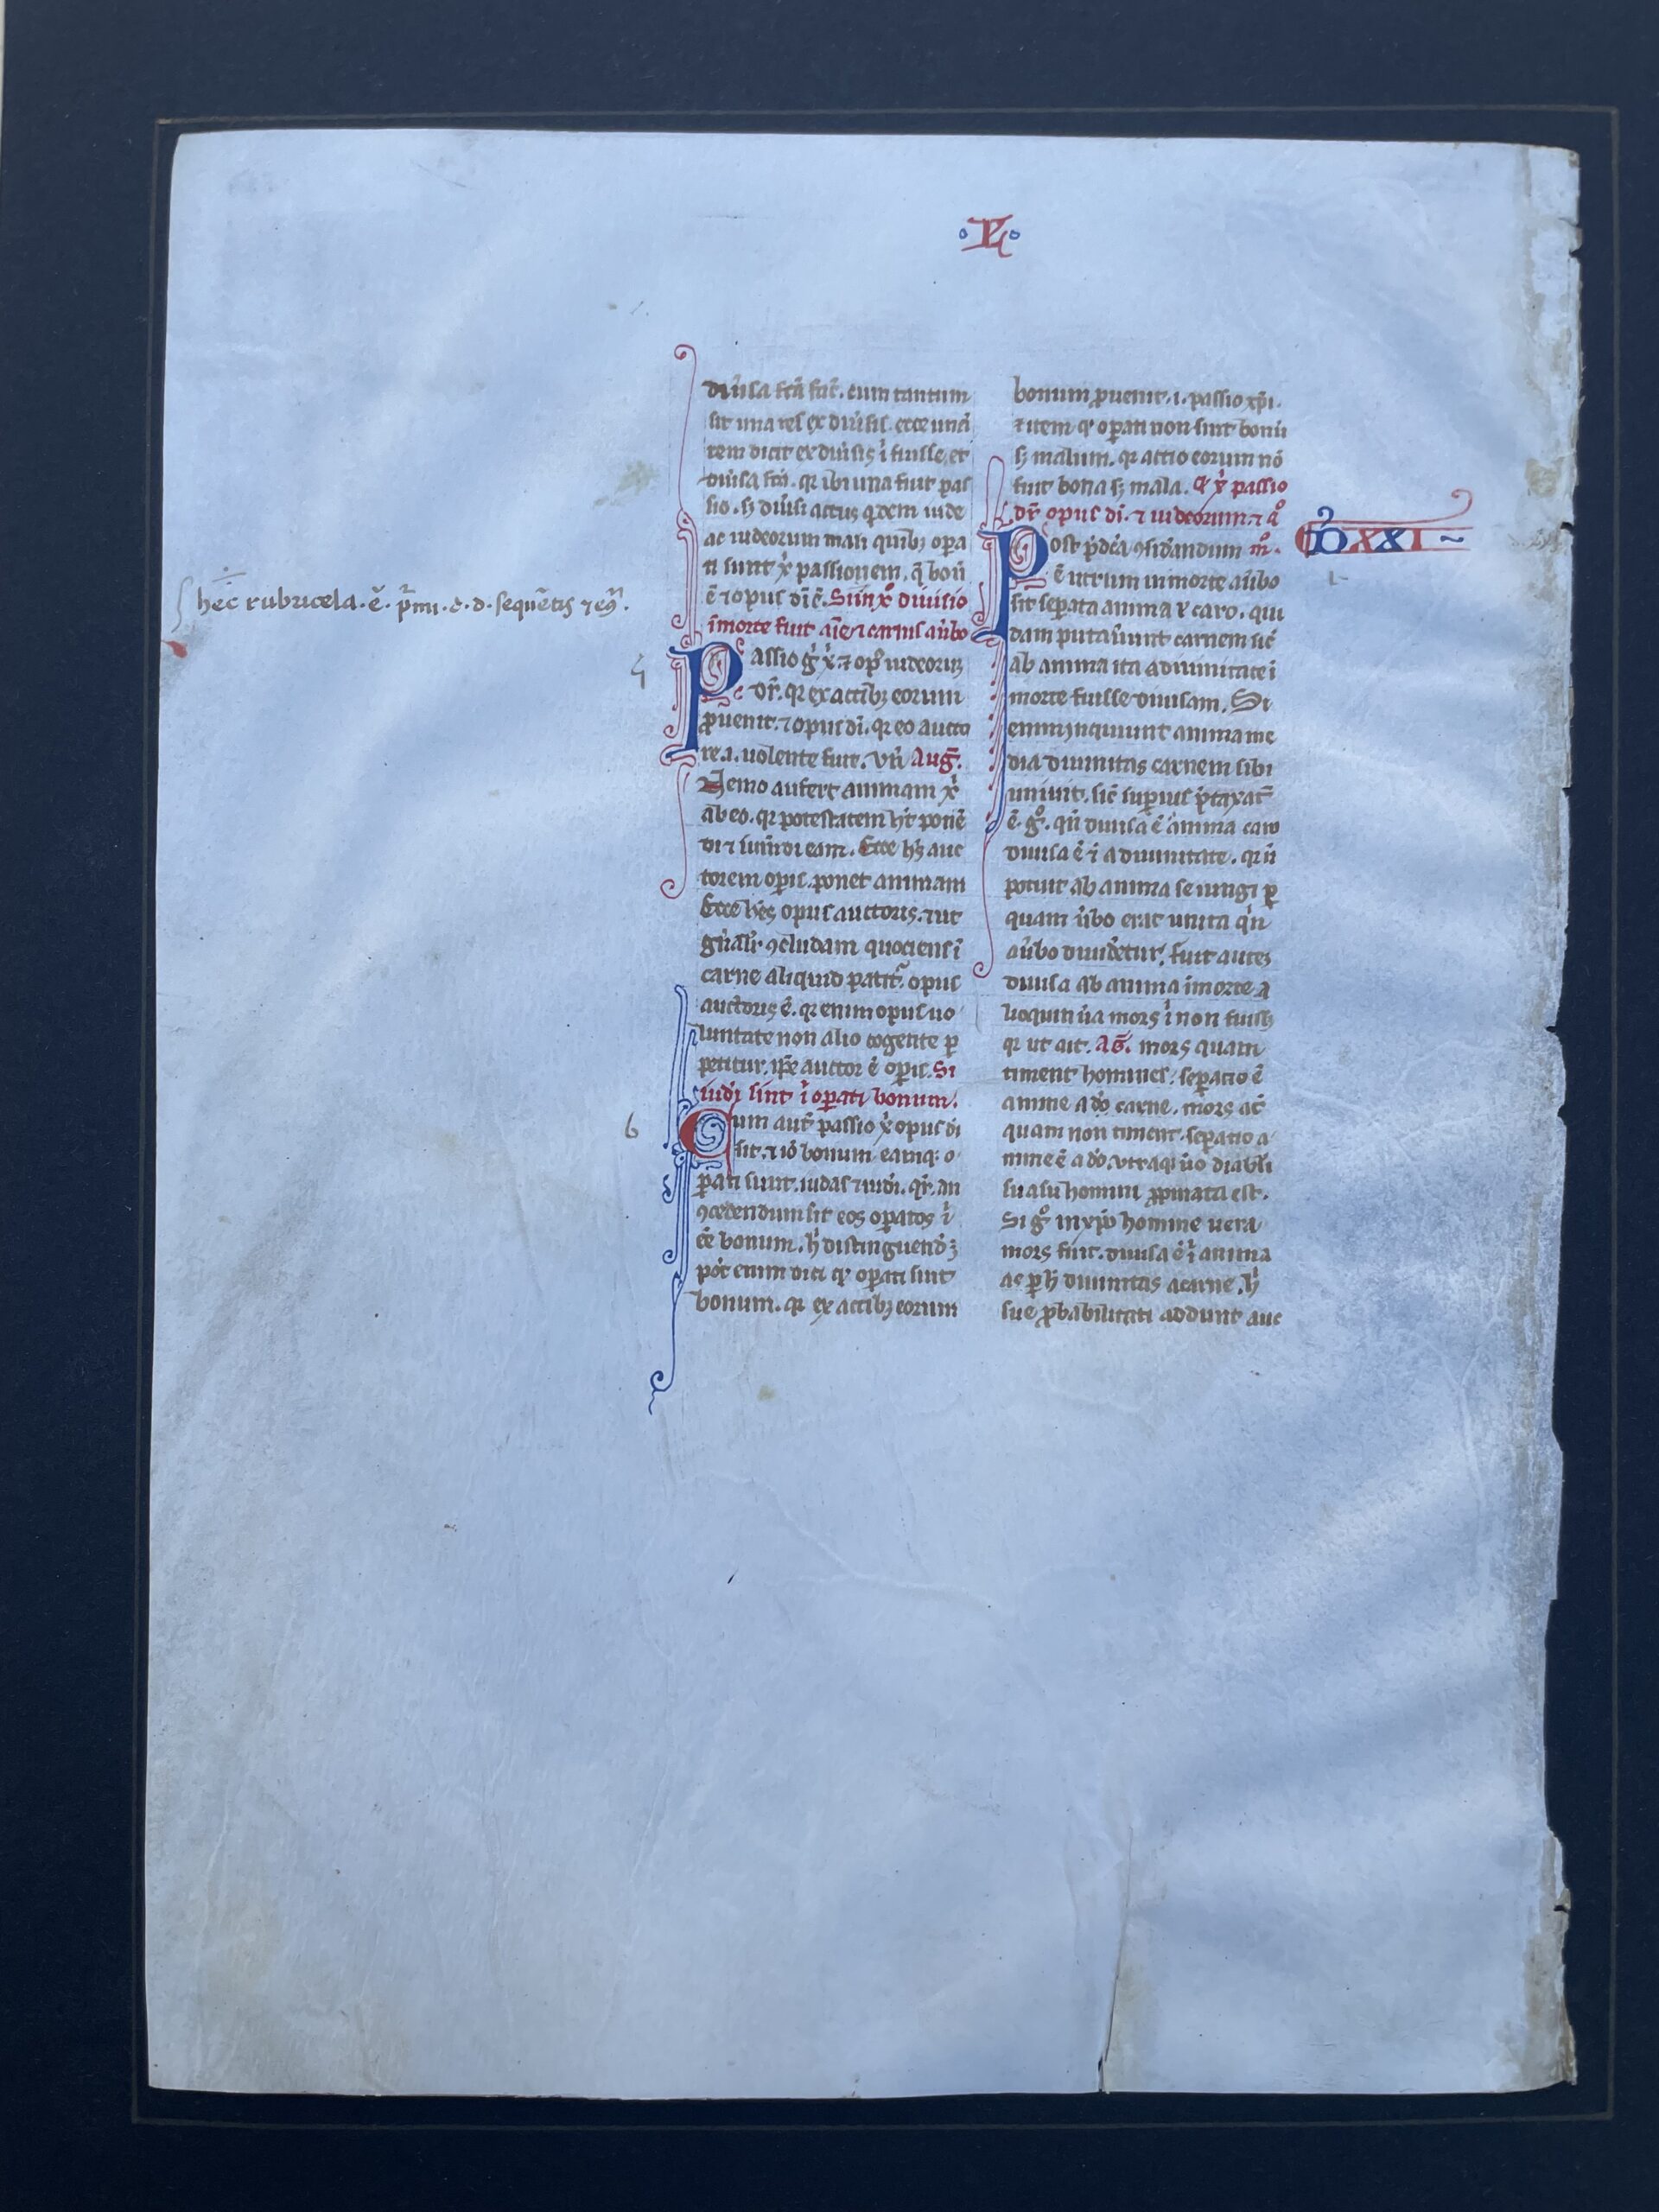 L
diuisa fcā sūt. cum tantum
sit una res ex diuisis. ecce unā
rem dicit ex diuisis i fuisse, et
diuisa fcā. qr ibi una fuit pas
sio. s; diuisi actus qdem iude
ac iudeorum mali quib; opa
ti sunt xi passionem. q̄ bonū
ē ⁊ opus di ē. Si in xo diuisio
i morte fuit aīe ⁊ carnis a ūbo
hec rubricela .ē. pmi .c. d. sequētis ⁊ eꝰ.
Passio gͦ xi ⁊ opꝰ iudeorū
dr̄. qr ex actib; eorum
ꝓuenit. ⁊ opus di. qr eo aucto
re .i. uolente fuit. Vn̄ Auḡ.
Nemo aufert animam xi
ab eo. qr potestatem h̄t ponē
di ⁊ sumēdi eam. Ecce h̄s auc
torem opis. ponet animam
Ecce h̄es opus auctoris. ⁊ ut
gn̄alit ꝯcludam quociens i
carne aliquid patit̄. opus
auctoris ē. qr enim opus uo
luntate non alio cogente p
petitur. ipse auctor ē opis. Si
iudi sint i opati bonum.
6
Cum aut̄ passio xi opus di
sit. ⁊ iō bonum eamq; o
pati sunt. iudas ⁊ iudi. qr̄. an
ꝯcedendum sit eos opatos i
ēē bonum. h̄ distinguend̄;
pōt enim dici qꝰ opati sint
bonum. qr ex actib; eorum
bonum ꝓuenit. i. passio xp̄i.
⁊ item qꝰ opati non sint bonū
s; malum. qr actio eorum nō
fuit bona s; mala. Qͥ xi passio
dr̄ opus di. ⁊ iudeorum. ⁊ qͦ
mͦ.
D XXI
Post p̄dc̄a ꝯsid̄andum
ē utrum in morte a ūbo
sit sep̄ata anima ł caro. qui
dam putau̇unt carnem sic̄
ab anima ita a diuinitate i
morte fuisse diuisam. Si
enim inquiunt anima me
dia diuinitas carnem sibi
uniuit. sic̄ supius p̄taxat̄
ē. gͦ. qn̄ diuisa ē anima caro
diuisa ē ⁊ a diuinitate. qr n̄
potuit ab anima seiungi p
quam ūbo erat unita qn̄
a ūbo diuidetur. fuit autē
diuisa ab anima i morte a
lioquin ūa mors i non fuiss;
qr ut ait. Ag̅. mors quam
timent homines. sepatio ē
anime a do carne. mors at̄
quam non timent. sepatio a
nime ē a do. utraqꝫ ūo diabli
suasu homini ꝓpinata est.
Si gͦ in xp̄o homine uera
mors fuit. diuisa ē i anima
ac p h̄ diuinitas a carne. h̄
sue ꝓbabilitati addunt auc